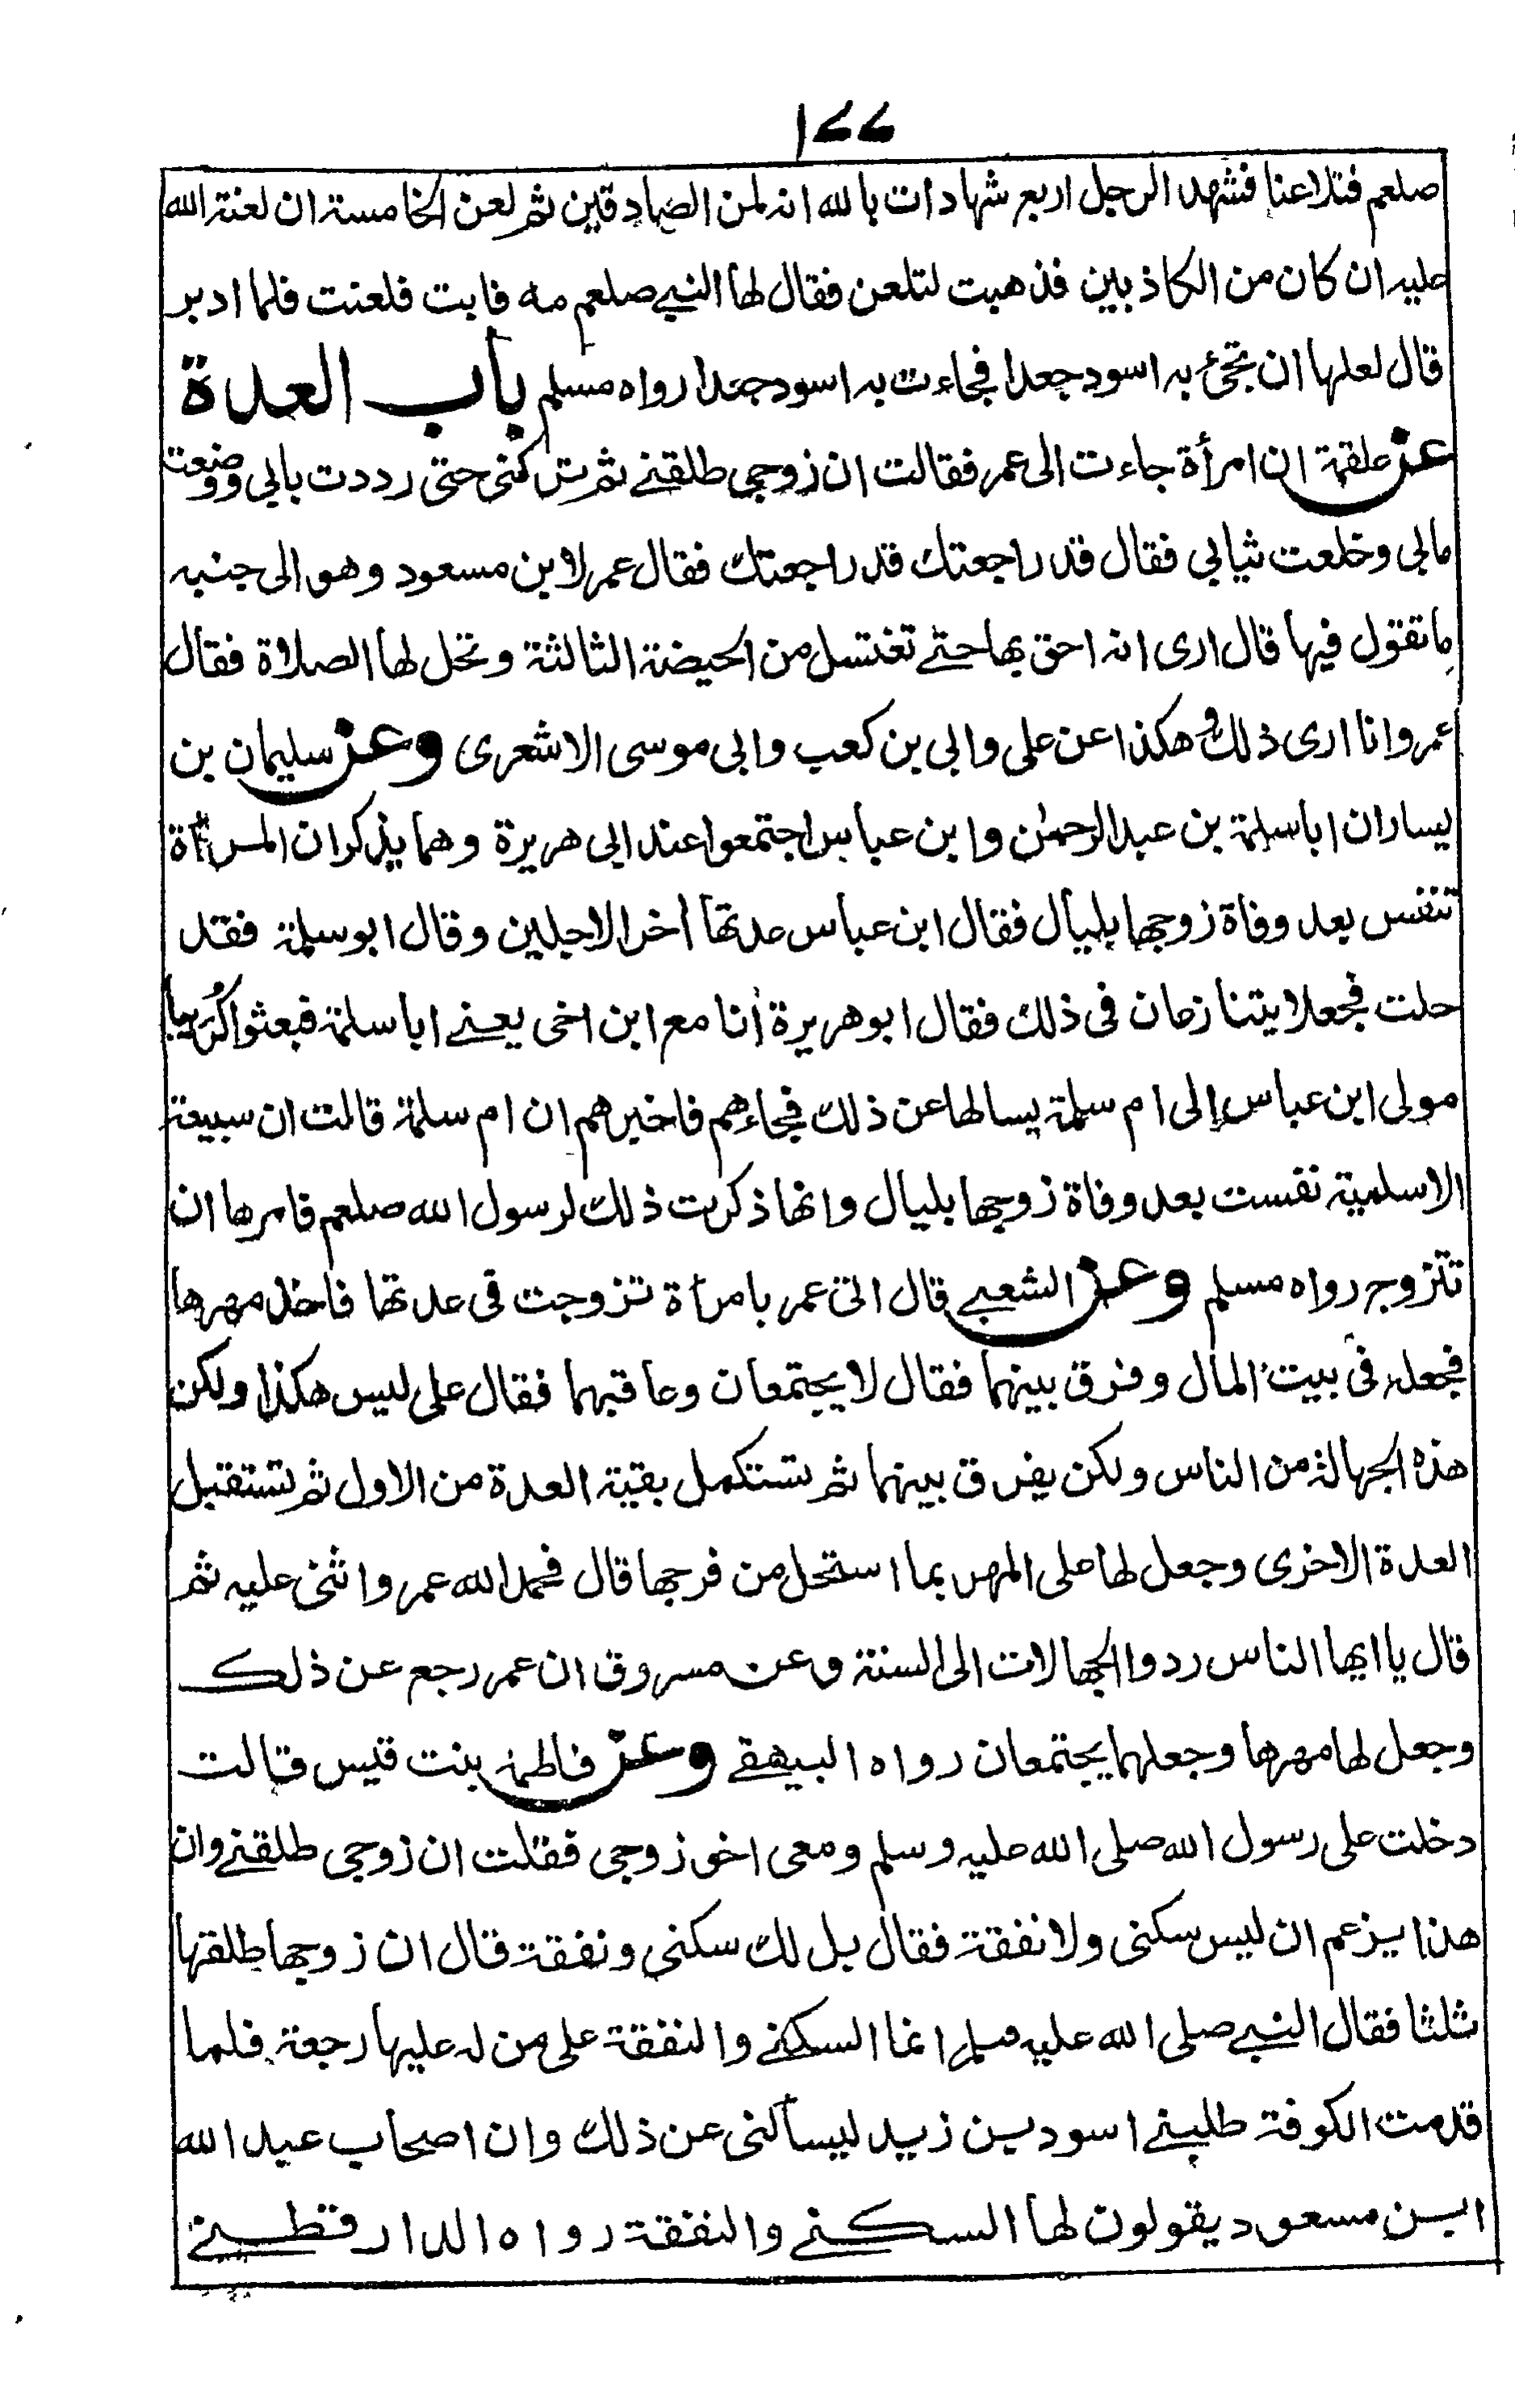 ١٧٧
صلعم فتلاعنا فشهد الرجل اربع شهادات بالله انه لمن الصادقين ثم لعن الخامسة ان لعنة الله
عليه ان كان من الكاذبين فذهبت لتلعن فقال لها النبي صلعم مه فابت فلعنت فلما ادبر
قال لعلها ان تجئ به اسود جعدا فجاءت به اسود جعدا رواه مسلم باب العدة
عن علقمة ان امرأة جاءت الى عمر فقالت ان زوجي طلقني ثم تركني حتى رددت بابي ووضعت
مالي وخلعت ثيابي فقال قد راجعتك قد راجعتك فقال عمر لابن مسعود وهو الى جنبه
ما تقول فيها قال ارى انه احق بها حتى تغتسل من الحيضة الثالثة وتحل لها الصلاة فقال
عمر وانا ارى ذلك وهكذا عن على وابي بن كعب وابي موسى الاشعرى وعن سليمان بن
يسار ان ابا سلمة بن عبد الرحمن وابن عباس اجتمعوا عند ابي هريرة وهما يذكران المرأة
تنفس بعد وفاة زوجها بليال فقال ابن عباس عدتها أخر الاجلين وقال ابو سلمة فقد
حلت فجعلا يتنازعان في ذلك فقال ابو هريرة أنا مع ابن اخي يعني ابا سلمة فبعثوا كُرَيبا
مولى ابن عباس إلى ام سلمة يسالها عن ذلك فجاءهم فاخبرهم ان ام سلمة قالت ان سبيعة
الاسلمية نفست بعد وفاة زوجها بليال وانها ذكرت ذلك لرسول الله صلعم فامرها ان
تتزوج رواه مسلم وعن الشعبي قال اتى عمر بامرأة تزوجت في عدتها فاخذ مهرها
فجعله في بيت المال وفرق بينهما فقال لا يجتمعان وعاقبهما فقال على ليس هكذا ولكن
هذه الجهالة من الناس ولكن يفرق بينهما ثم تستكمل بقية العدة من الاول ثم تستقبل
العدة الاخرى وجعل لها على المهر بما استحل من فرجها قال فحمد الله عمر واثنى عليه ثم
قال يا ايها الناس ردوا الجهالات الى السنة وعن مسروق ان عمر رجع عن ذلك
وجعل لها مهرها وجعلهما يجتمعان رواه البيهقي وعن فاطمة بنت قيس قالت
دخلت على رسول الله صلى الله عليه وسلم ومعى اخو زوجي فقلت ان زوجي طلقني وان
هذا يزعم ان ليس سكنى ولا نفقة فقال بل لك سكنى ونفقة قال ان زوجها طلقها
ثلثا فقال النبي صلى الله عليه وسلم انما السكنى والنفقة على من له عليها رجعة فلما
قدمت الكوفة طلبني اسود بن زيد ليسألنى عن ذلك وان اصحاب عبد الله
ابن مسعود يقولون لها السكنى والنفقة رواه الدارقطني